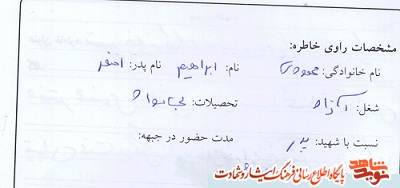 مشخصات راوی خاطره:
نام خانوادگی: محمودی نام: ابراهیم نام پدر: اصغر
شغل: آزاد تحصیلات:
نسبت با شهید: پدر مدت حضور در جبهه:
نوید شاهد
پایگاه اطلاع رسانی فرهنگ ایثار و شهادت